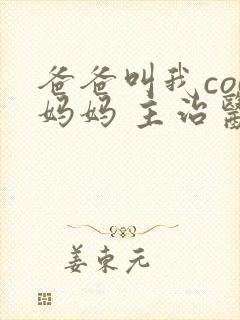 爸爸叫我co
妈妈 主治醫
姜東元